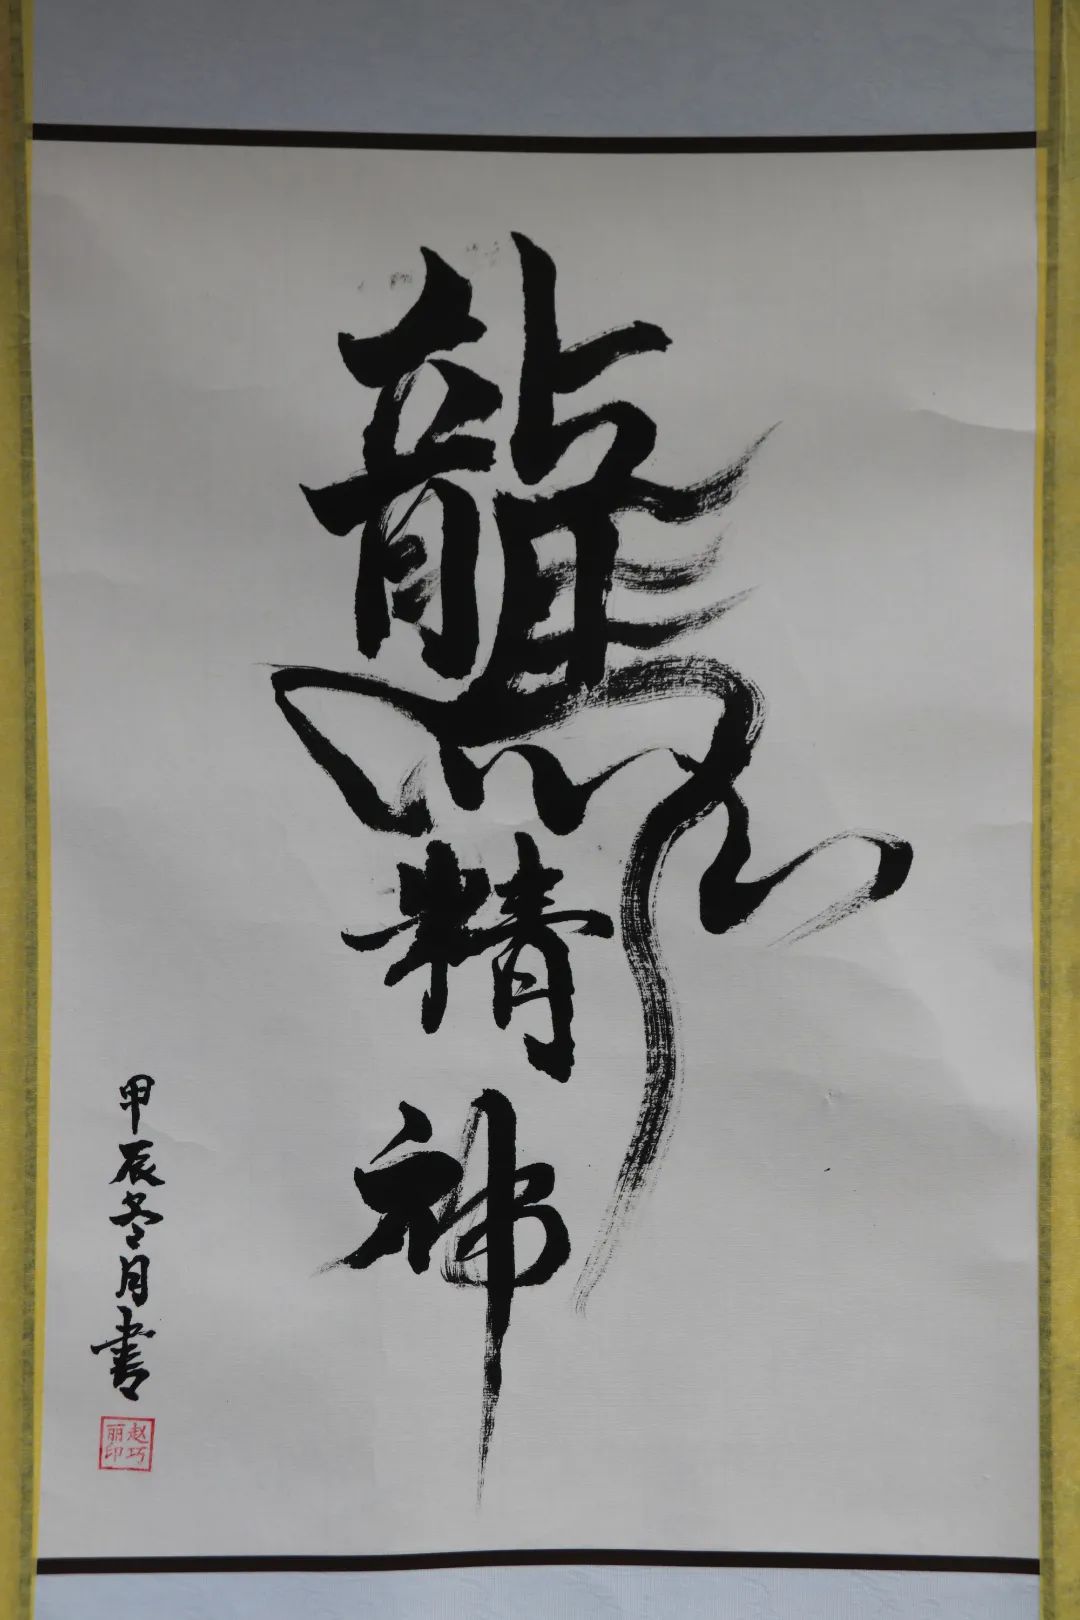 龍馬精神
甲辰冬月書
赵巧
丽印